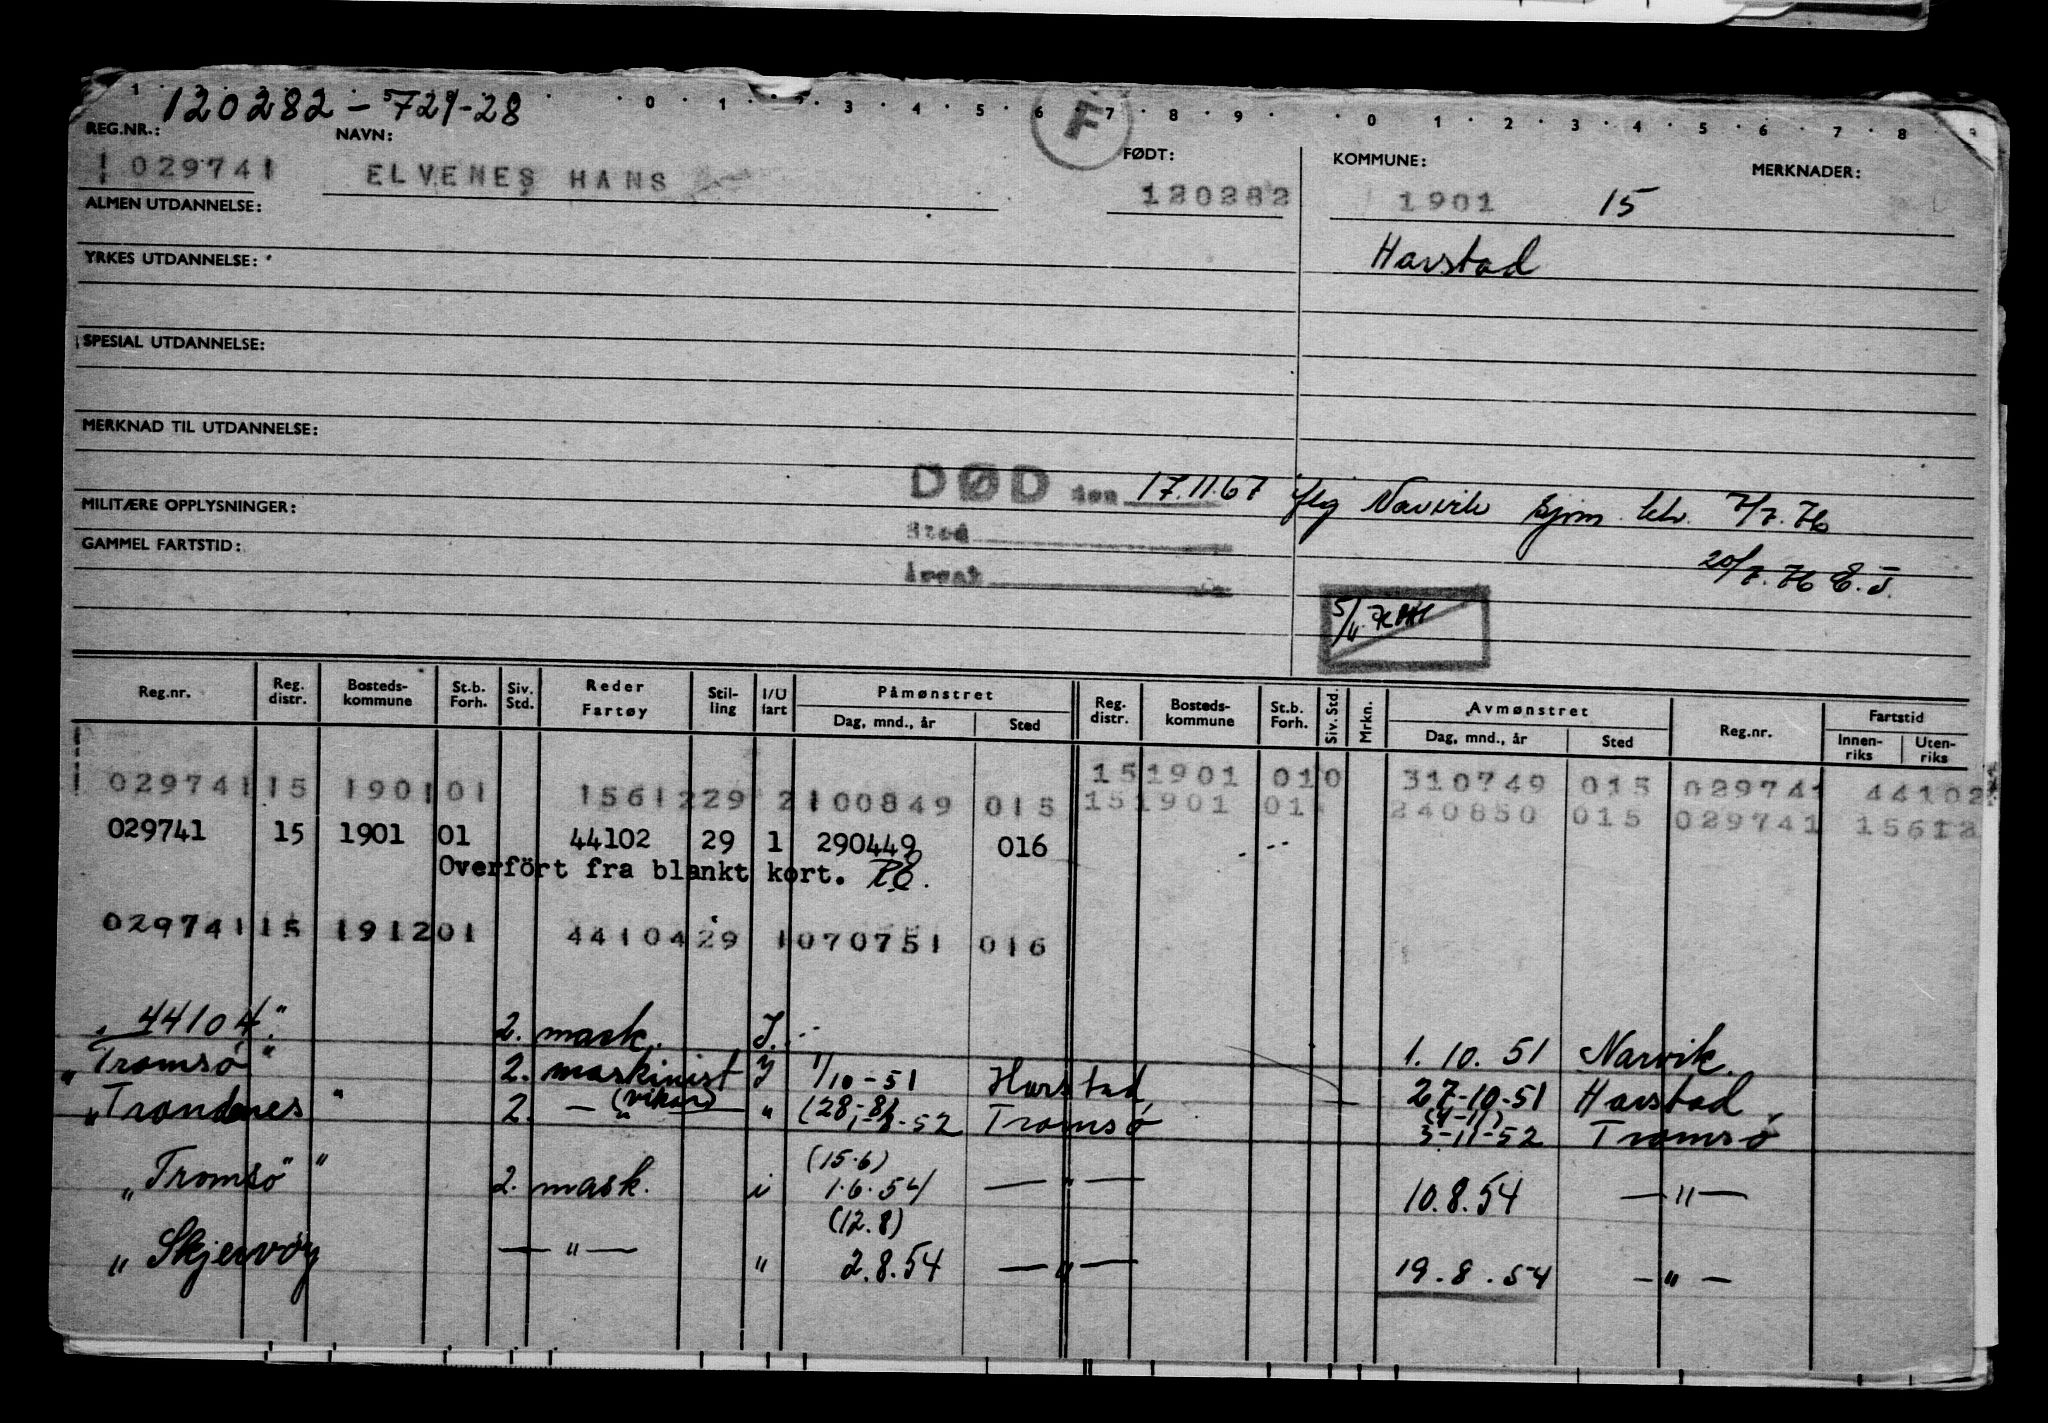 120282 - 729-28
REG.NR.: NAVN: F FØDT: KOMMUNE: MERKNADER:
029741 ELVENES HANS 120282 1901 15
ALMEN UTDANNELSE:
Harstad
YRKES UTDANNELSE:
SPESIAL UTDANNELSE:
MERKNAD TIL UTDANNELSE:
DØD den 17.11.67 iflg Narvik sjøm. ktr. 7/7.76
MILITÆRE OPPLYSNINGER:
Sted
GAMMEL FARTSTID:
20/7.76 E.J.
Årsak
5/11
Reg.nr. Reg. distr. Bosteds-kommune St.b. Forh. Siv. Std. Reder Fartøy Stil-ling I/U fart Påmønstret Dag, mnd., år Sted Reg. distr. Bosteds-kommune St.b. Forh. Siv. Std. Mrkn. Avmønstret Dag, mnd., år Sted Reg.nr. Fartstid Innen-riks Uten-riks
029741 15 1901 01 15612 29 2 100849 015 15 1901 01 0 310749 015 029741 44102
15 1901 01 240850 015 029741 15612
029741 15 1901 01 44102 29 1 290449 016
Overfört fra blankt kort.
029741 15 1912 01 44104 29 1 070751 016
" 44104." 2. mask. I. 1. 10. 51 Narvik.
"Tromsö" 2. maskinist I 1/10-51 Harstad, 27-10-51 Harstad,
(vikar) (28-8) (4-11)
"Trondenes" 2. — " — " 1-8-52 Tromsö 3-11-52 Tromsö
(15.6)
"Tromsö" " 2. mask. i 1.6.54 — " — 10.8.54 — " —
(12.8)
" Skjervöy — " — " 2.8.54 — " — 19.8.54 — " —